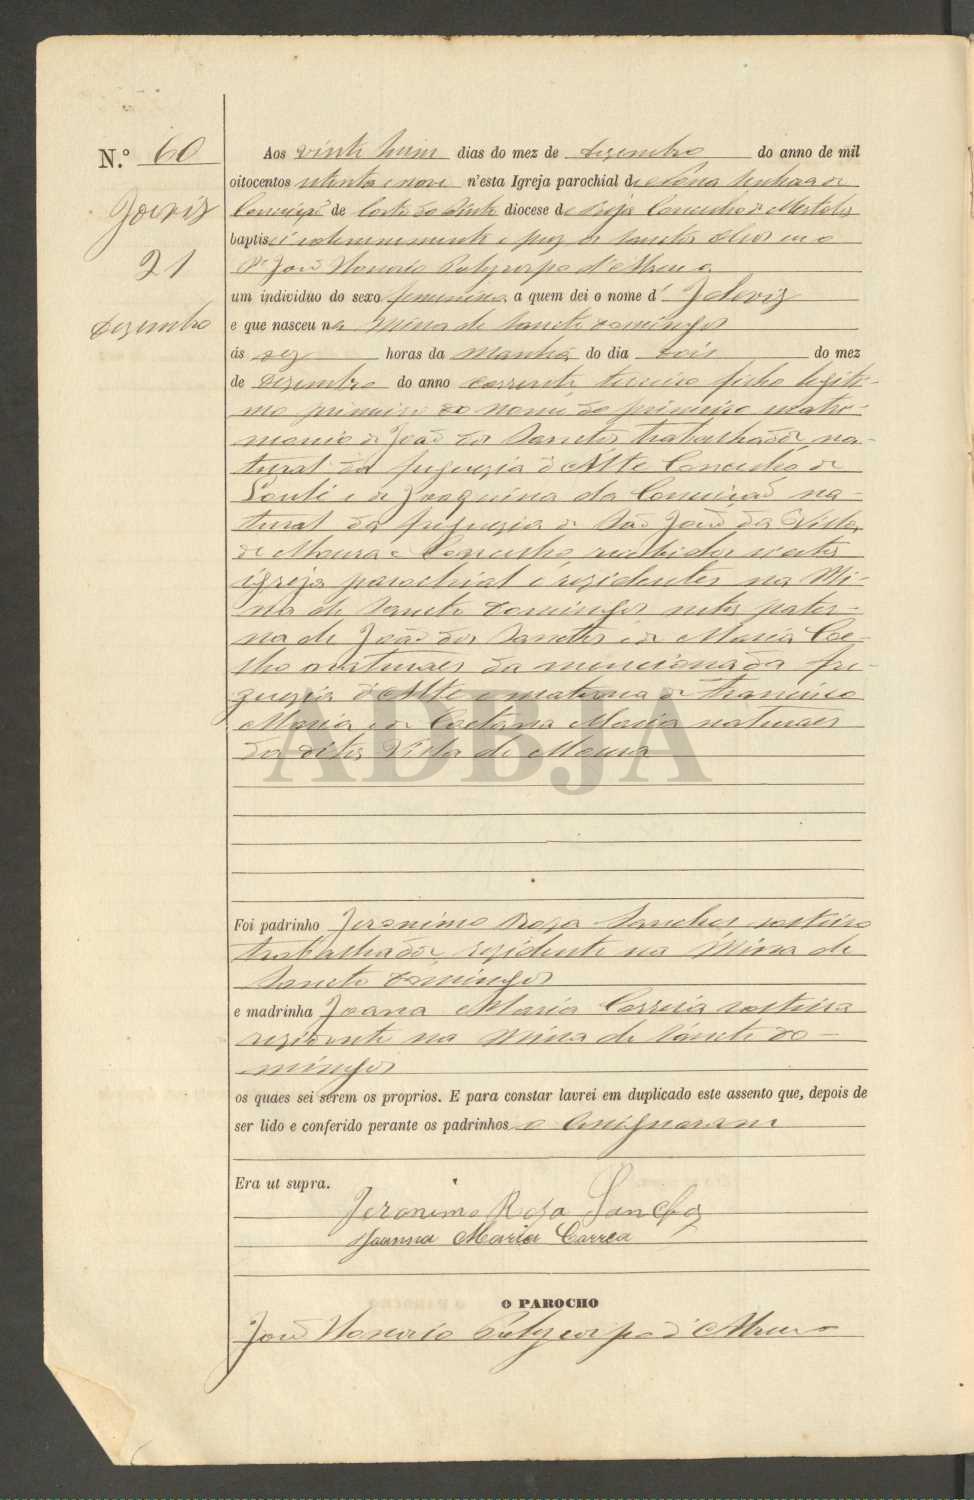 N.º 60
21
Dezembro
Aos vinte hum dias do mez de dezembro do anno de mil
oitocentos oitenta e nove n'esta Igreja parochial de Senhora da
Conceição de Corte do Pinto diocese de Beja Concelho de Mertola
baptisei solemnemente e puz os Sanctos Oleos eu o
Pe João Honorio Polycarpo d'Abreu a
um individuo do sexo femenino a quem dei o nome d'
e que nasceu na Mina de Sancto Domingos
ás dez horas da manhã do dia dois do mez
de Dezembro do anno corrente terceiro filho legiti-
mo primeiro do nome do primeiro matri-
monio de João dos Sanctos trabalhador na-
tural da freguezia d'Alte Concelho de
Loulé e de Joaquina da Conceição na-
tural da freguezia de São João da Villa
de Moura e Concelho recebidos nesta
igreja parochial e rezidentes na Mi-
na de Sancto Domingos neto pater-
na de João dos Sanctos e de Maria Coe-
lho naturaes da mencionada fre-
guezia d'Alte e materna de Francisco
Maria e de Caetana Maria naturaes
da dita Villa de Moura
ADBJA
Foi padrinho Jeronimo Roza Sanches solteiro
trabalhador rezidente na Mina de
Sancto Domingos
e madrinha Joana Maria Correia solteira
rezidente na Mina de Sancto Do-
mingos
os quaes sei serem os proprios. E para constar lavrei em duplicado este assento que, depois de
ser lido e conferido perante os padrinhos o assignaram
Era ut supra.
Jeronimo Roza Sanches
Joanna Maria Correa
O PAROCHO
João Honorio Polycarpo d'Abreu